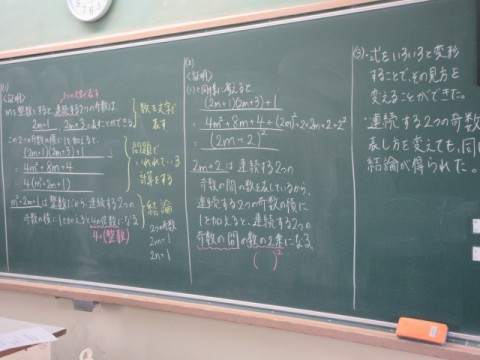 (1)
<証明>
mを整数とすると、連続する2つの奇数は、
2m+1、2m+3と表すことができる
この2つの奇数の積に1を加えると、
(2m+1)(2m+3)+1
= 4m²+8m+4
= 4(m²+2m+1)
m²+2m+1は整数だから、連続する2つの
奇数の積に1を加えると4の倍数になる
4×(整数)
数を文字で
表す
問題で
いわれている
計算をする
結論
2つの奇数
2m+1
2n+1
(2)
<証明>
(1)と同様に考えると、
(2m+1)(2m+3)+1
= 4m²+8m+4
= (2m+2)²
2m+2は連続する2つの
奇数の間の数を表しているから、
連続する2つの奇数の積に
1を加えると、連続する2つの
奇数の間の数の2乗になる
( )²
(3)・式をいろいろと変形
することで、その見方を
変えることができた。
・連続する2つの奇数
表し方を変えても、同
結論が得られた。